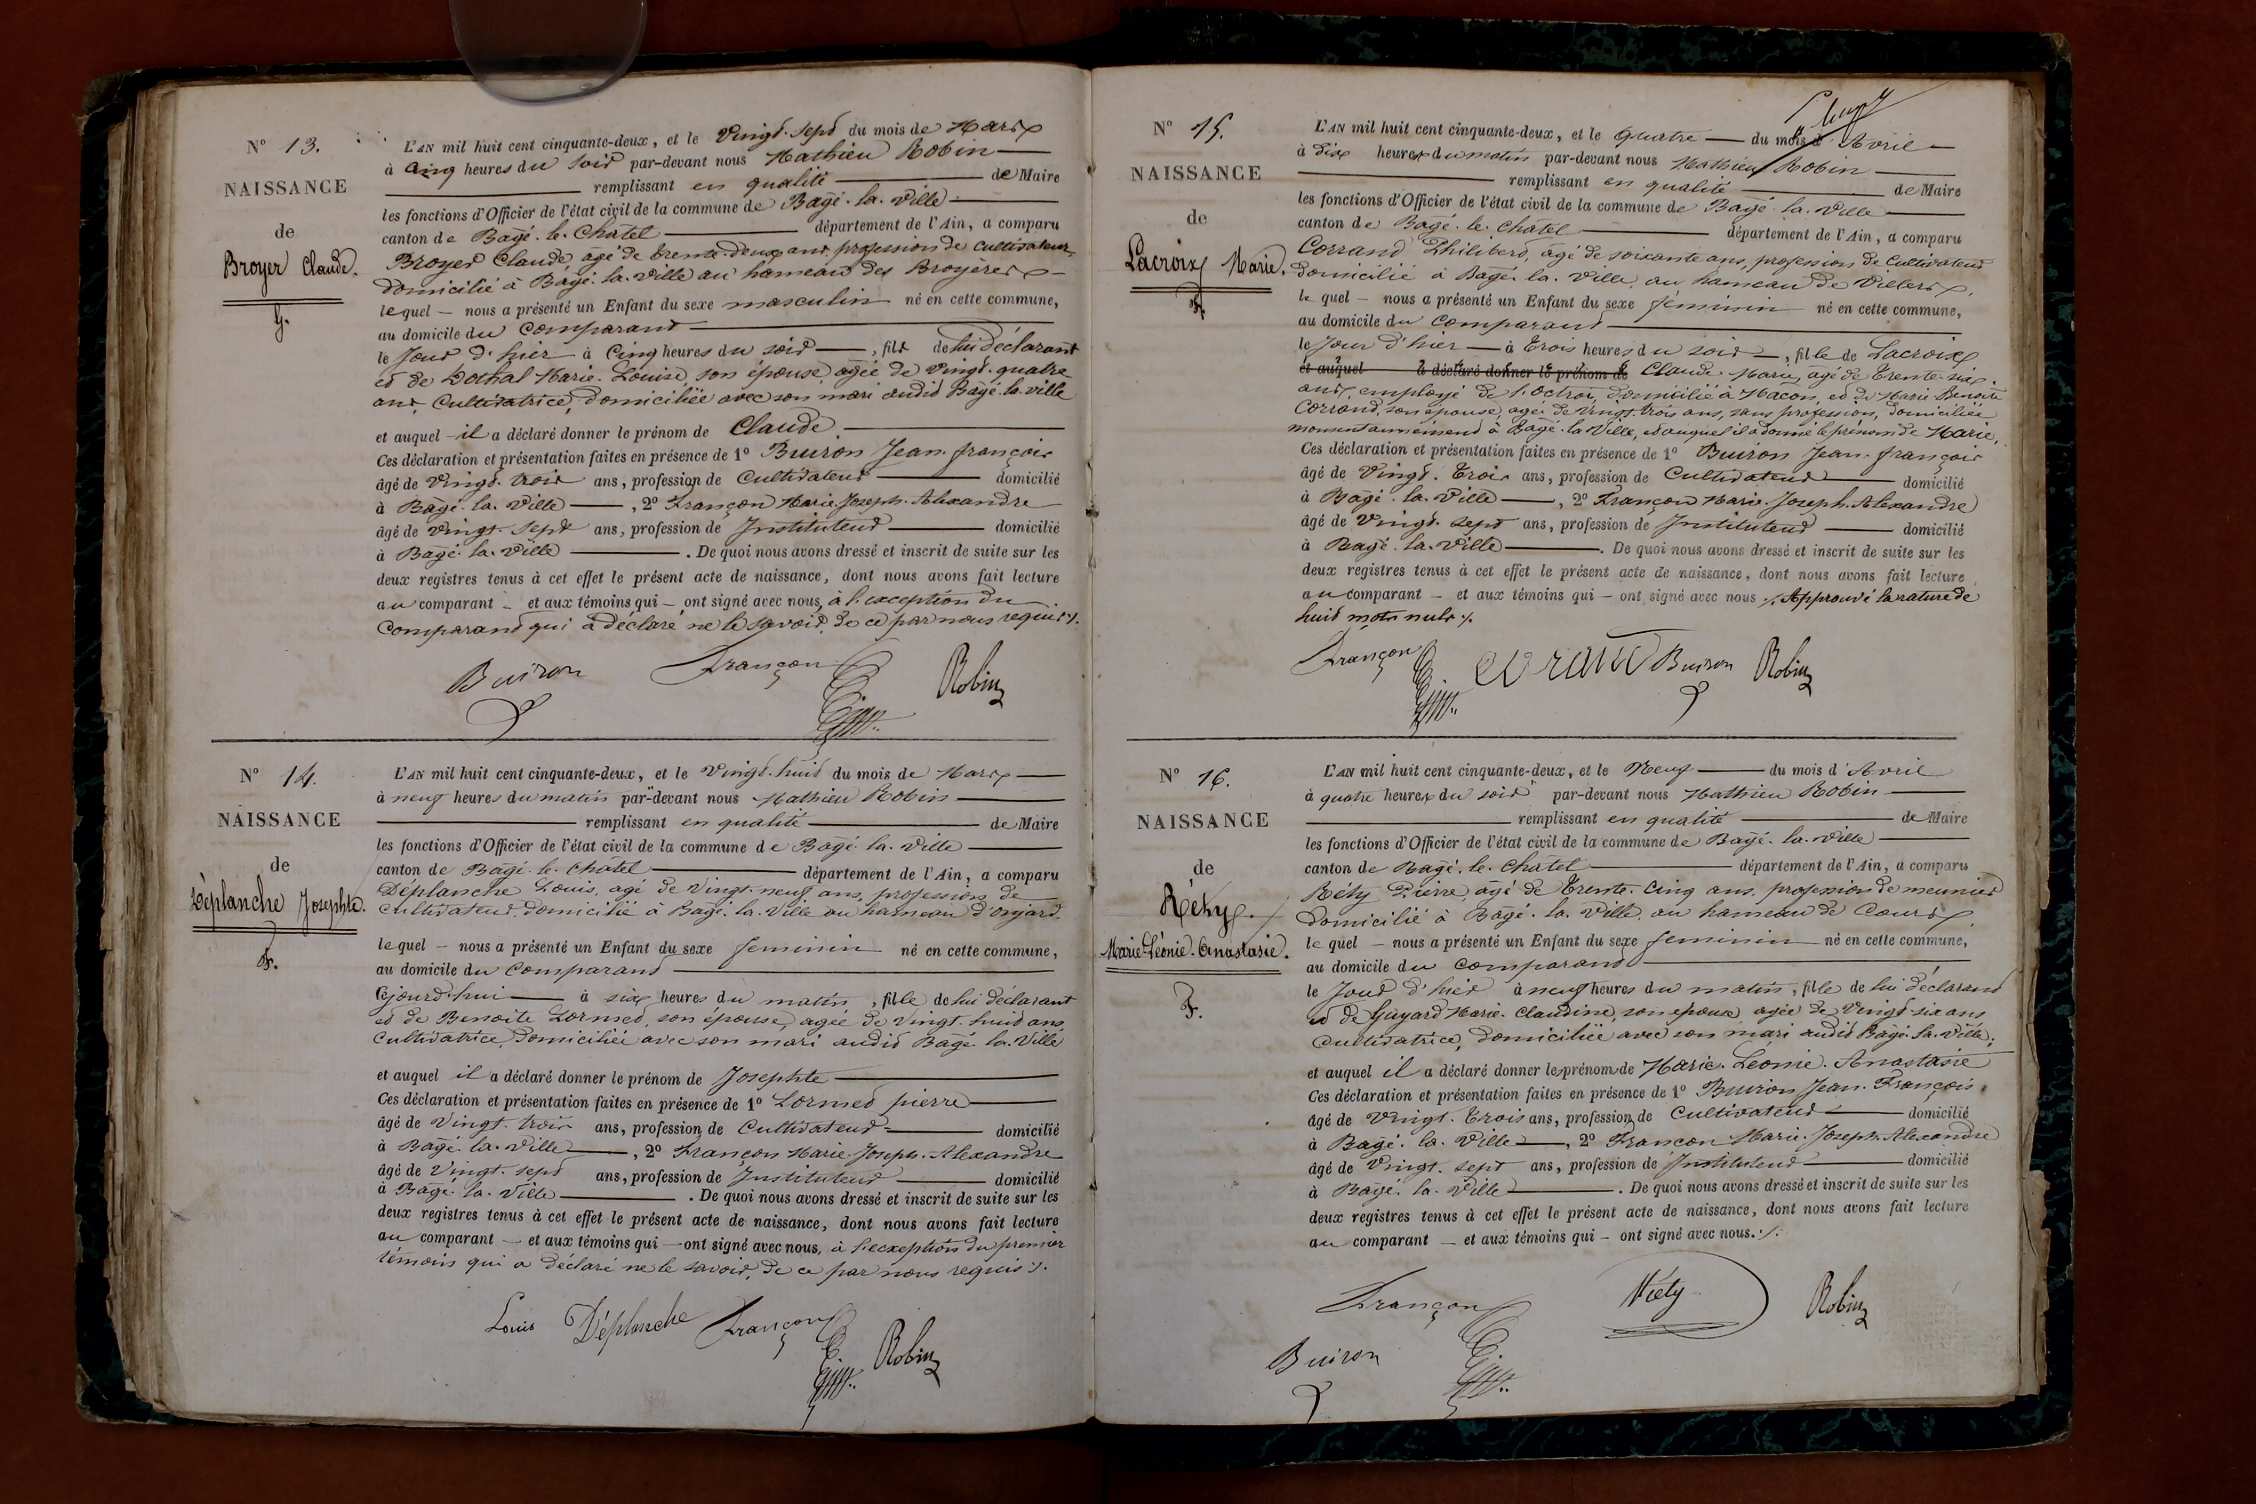 N° 13.
NAISSANCE
de
Broyer Claude.
G.
L'AN mil huit cent cinquante-deux, et le Vingt-sept du mois de Mars
à Cinq heures du soir par-devant nous Mathieu Robin
remplissant en qualité de Maire
les fonctions d'Officier de l'état civil de la commune de Bagé-la-Ville
canton de Bagé-le-Châtel département de l'Ain, a comparu
Broyer Claude, agé de trente-deux ans, profession de cultivateur,
domicilié à Bagé-la-Ville au hameau des Broyères
lequel nous a présenté un Enfant du sexe masculin né en cette commune,
au domicile du comparant
le jour d'hier à Cinq heures du soir, fils de lui déclarant
et de Dothal Marie-Louise, son épouse, agée de vingt-quatre
ans, Cultivatrice, domiciliée avec son mari audit Bagé-la-ville
et auquel il a déclaré donner le prénom de Claude
Ces déclaration et présentation faites en présence de 1° Buiron Jean-françois
âgé de Vingt-trois ans, profession de Cultivateur domicilié
à Bagé-la-Ville, 2° Françon Marie-Joseph-Alexandre
âgé de vingt-sept ans, profession de Instituteur domicilié
à Bagé-la-Ville. De quoi nous avons dressé et inscrit de suite sur les
deux registres tenus à cet effet le présent acte de naissance, dont nous avons fait lecture
au comparant et aux témoins qui ont signé avec nous, à l'exception du
Comparant qui a déclaré ne le savoir, de ce par nous requis ./.
Buiron Françon Robin
N° 14.
NAISSANCE
de
Déplanche Josephte.
F.
L'AN mil huit cent cinquante-deux, et le Vingt-huit du mois de Mars
à neuf heures du matin par-devant nous Mathieu Robin
remplissant en qualité de Maire
les fonctions d'Officier de l'état civil de la commune de Bagé-la-Ville
canton de Bagé-le-Châtel département de l'Ain, a comparu
Déplanche Louis, agé de vingt-neuf ans, profession de
cultivateur, domicilié à Bagé-la-Ville au hameau d'onjard
lequel nous a présenté un Enfant du sexe feminin né en cette commune,
au domicile du Comparant
Cejourd'hui à six heures du matin, fille de lui déclarant
et de Benoite Lormet, son épouse, agée de Vingt-huit ans,
Cultivatrice, domiciliée avec son mari audit Bagé-la-Ville
et auquel il a déclaré donner le prénom de Josephte
Ces déclaration et présentation faites en présence de 1° Lormet pierre
âgé de Vingt-trois ans, profession de Cultivateur domicilié
à Bagé-la-Ville, 2° Françon Marie-Joseph-Alexandre
âgé de Vingt-sept ans, profession de Instituteur domicilié
à Bagé-la-Ville. De quoi nous avons dressé et inscrit de suite sur les
deux registres tenus à cet effet le présent acte de naissance, dont nous avons fait lecture
au comparant et aux témoins qui ont signé avec nous, à l'exception du premier
témoin qui a déclaré ne le savoir, de ce par nous requis ./.
Louis Déplanche Françon Robin
N° 15.
NAISSANCE
de
Lacroix Marie.
F.
L'AN mil huit cent cinquante-deux, et le quatre du mois d'Avril
à dix heures du matin par-devant nous Mathieu Robin
remplissant en qualité de Maire
les fonctions d'Officier de l'état civil de la commune de Bagé-la-Ville
canton de Bagé-le-Châtel département de l'Ain, a comparu
Corrand Philibert, agé de soixante ans, profession de Cultivateur
domicilié à Bagé-la-Ville, au hameau de Vielers,
lequel nous a présenté un Enfant du sexe féminin né en cette commune,
au domicile du Comparant
le Jour d'hier à trois heures du soir, fille de Lacroix
et auquel a déclaré donner le prénom de Claude-Marie, agé de trente-six
ans, employé de l'octroi, domicilié à Macon, et de Marie Benoite
Corrand, son épouse, agée de vingt-trois ans, sans profession, domiciliée
momentanément à Bagé-la-Ville, et auquel il a donné le prénom de Marie,
Ces déclaration et présentation faites en présence de 1° Buiron Jean-françois
âgé de Vingt-trois ans, profession de Cultivateur domicilié
à Bagé-la-Ville, 2° Françon Marie-Joseph-Alexandre
âgé de Vingt-sept ans, profession de Instituteur domicilié
à Bagé-la-Ville. De quoi nous avons dressé et inscrit de suite sur les
deux registres tenus à cet effet le présent acte de naissance, dont nous avons fait lecture
au comparant et aux témoins qui ont signé avec nous ./. Approuvé la rature de
huit mots nuls ./.
Françon Corrand Buiron Robin
N° 16.
NAISSANCE
de
Réty.
Marie-Léonie-Anastasie.
F.
L'AN mil huit cent cinquante-deux, et le Neuf du mois d'Avril
à quatre heures du soir par-devant nous Mathieu Robin
remplissant en qualité de Maire
les fonctions d'Officier de l'état civil de la commune de Bagé-la-Ville
canton de Bagé-le-Châtel département de l'Ain, a comparu
Réty Pierre, agé de trente-Cinq ans, profession de meunier
domicilié à Bagé-la-Ville, au hameau de Cours,
lequel nous a présenté un Enfant du sexe feminin né en cette commune,
au domicile du Comparant
le Jour d'hier à neuf heures du matin, fille de lui déclarant
et de Guyard Marie-Claudine, son epouse, agée de Vingt-six ans
Cultivatrice, domiciliée avec son mari audit Bagé-la-Ville,
et auquel il a déclaré donner les prénoms de Marie-Léonie-Anastasie
Ces déclaration et présentation faites en présence de 1° Buiron Jean-François
âgé de Vingt-trois ans, profession de Cultivateur domicilié
à Bagé-la-Ville, 2° Françon Marie-Joseph-Alexandre
âgé de Vingt-sept ans, profession de Instituteur domicilié
à Bagé-la-Ville. De quoi nous avons dressé et inscrit de suite sur les
deux registres tenus à cet effet le présent acte de naissance, dont nous avons fait lecture
au comparant et aux témoins qui ont signé avec nous ./.
Françon Réty Robin
Buiron